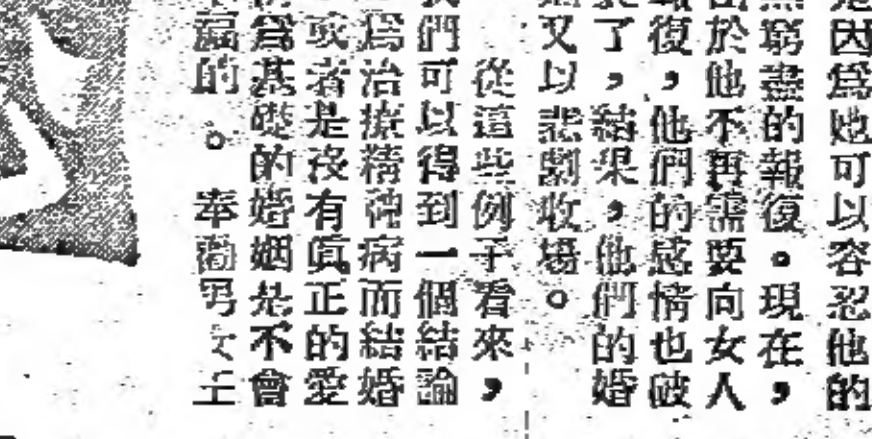 因為她可以容忍他的
窮盡的報復。現在,
於他不再需要向女人
復,他們的感情也破
了,結果,他們的婚
又以悲劇收場。
從這些例子看來,
們可以得到一個結論
為治療精神病而結婚
或者是沒有真正的愛
為基礎的婚姻是不會
福的。奉勸男女士